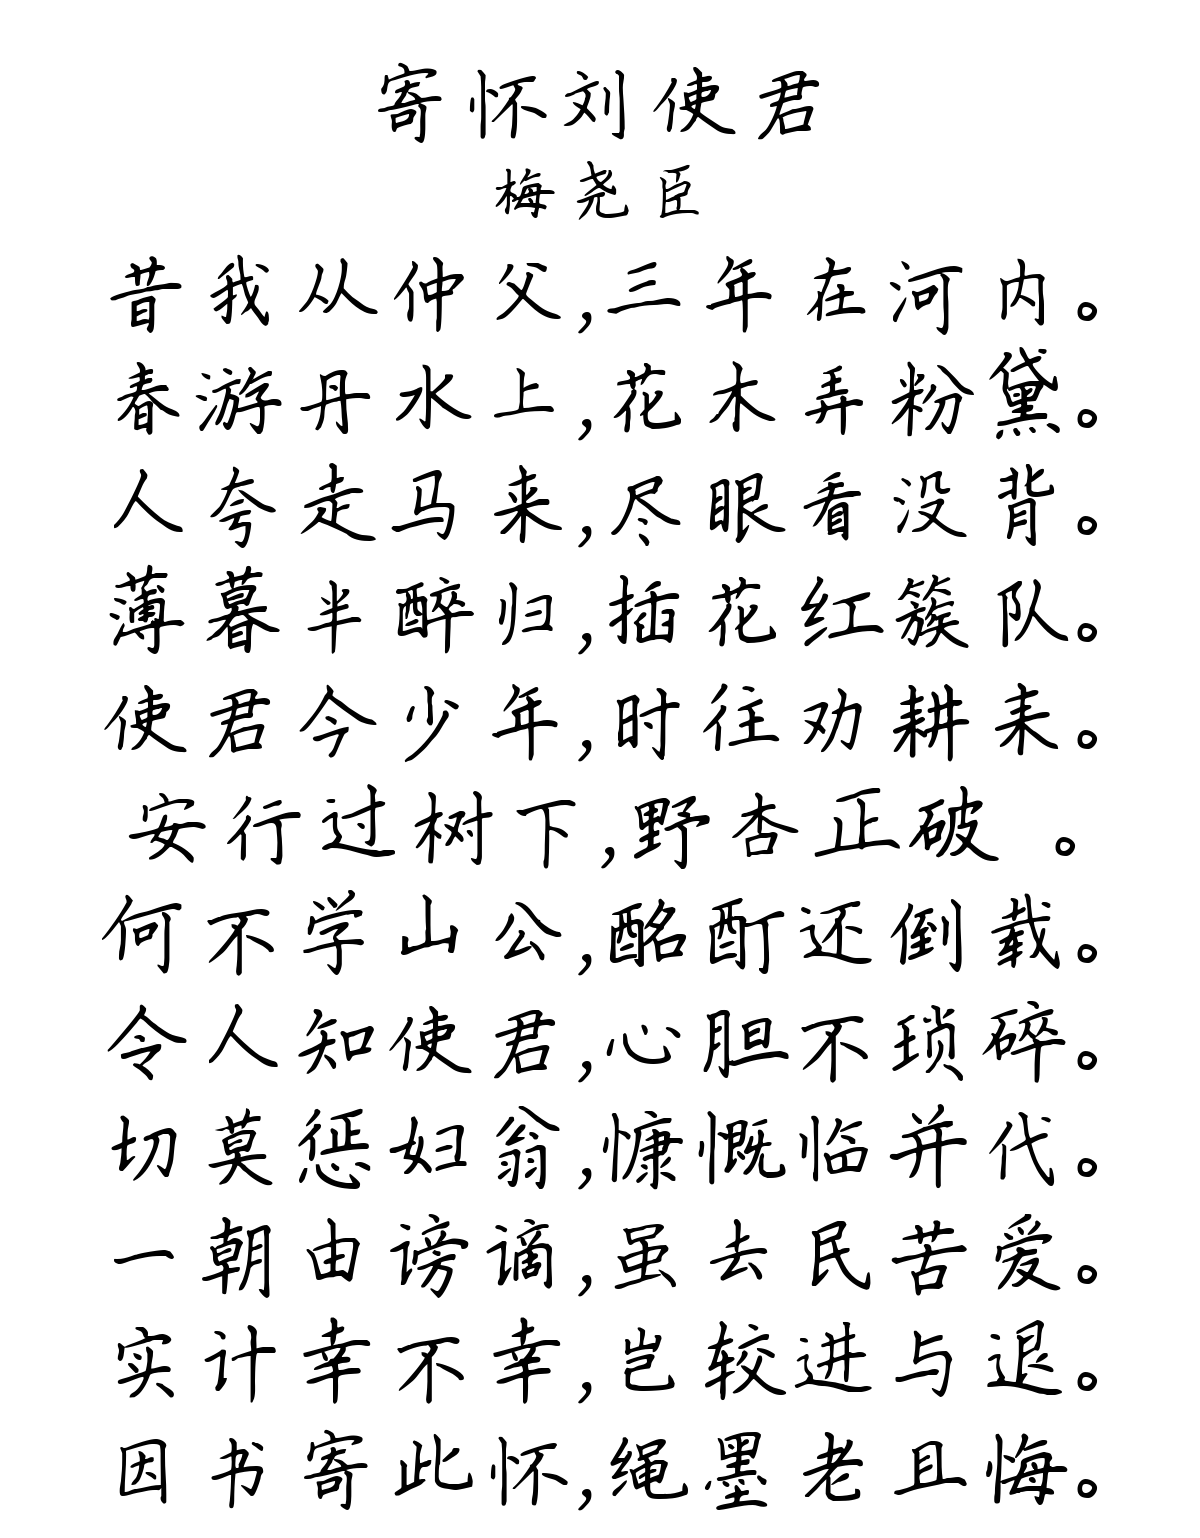 寄怀刘使君
梅尧臣
昔我从仲父,三年在河内。
春游丹水上,花木弄粉黛。
人夸走马来,尽眼看没背。
薄暮半醉归,插花红簇队。
使君今少年,时往劝耕耒。
安行过树下,野杏正破 。
何不学山公,酩酊还倒载。
令人知使君,心胆不琐碎。
切莫惩妇翁,慷慨临并代。
一朝由谤谪,虽去民苦爱。
实计幸不幸,岂较进与退。
因书寄此怀,绳墨老且悔。